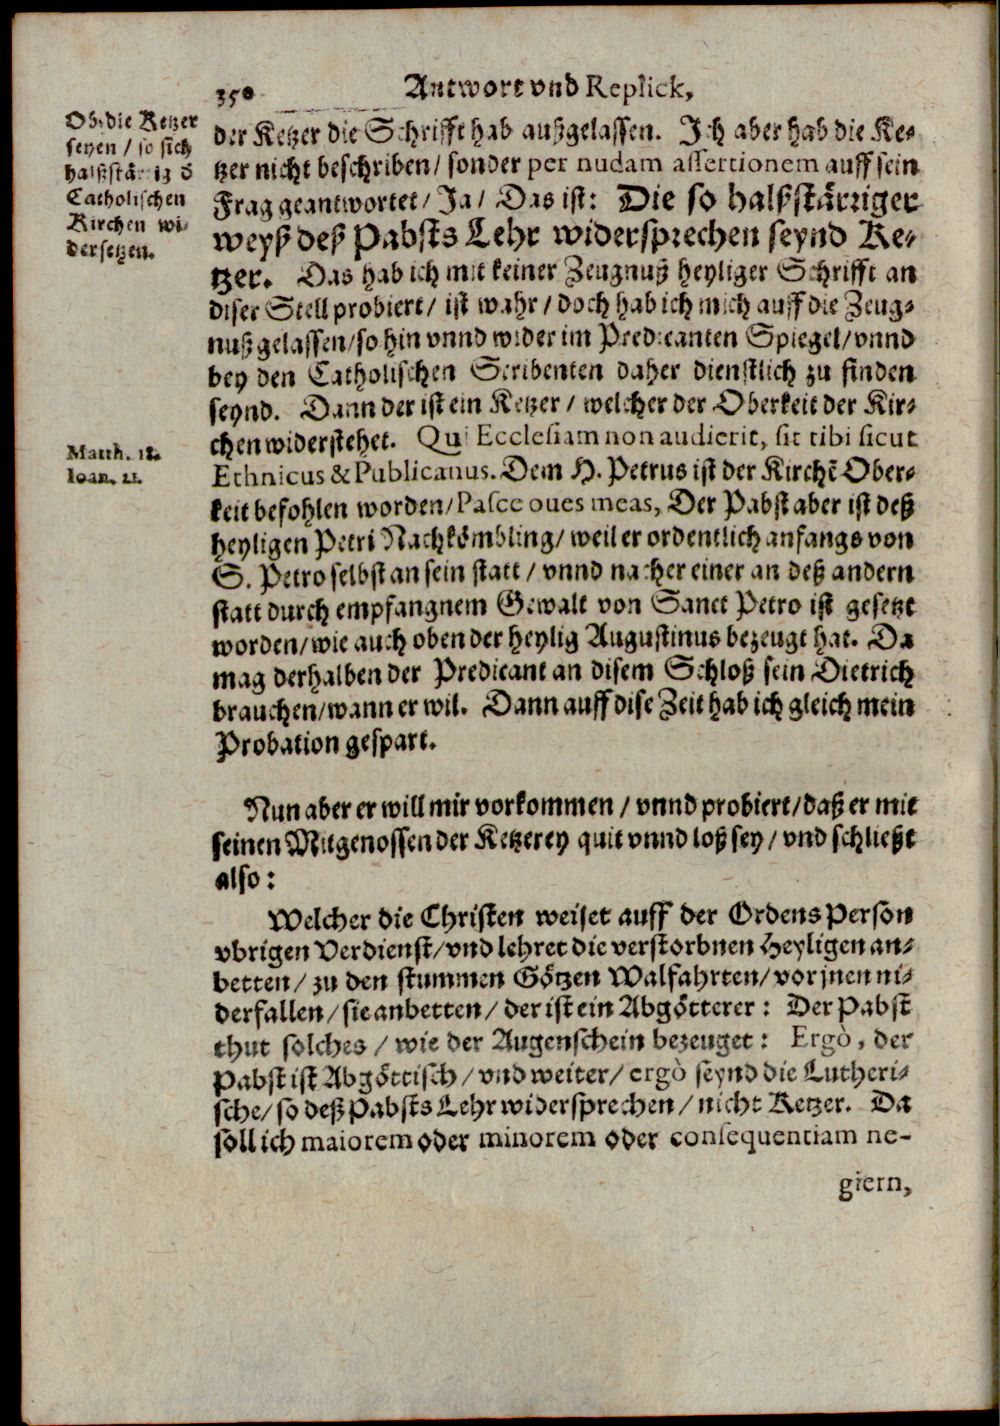 350 Antwort vnd Replick,
Ob die Ketzer
seyen / so sich
halßstärrig d̕
Catholischen
Kirchen wi-
dersetzen.
der Ketzer die Schrifft hab außgelassen. Ich aber hab die Ke-
tzer nicht beschriben / sonder per nudam assertionem auff sein
Frag geantwortet / Ja / Das ist: Die so halßstärriger
weyß deß Pabsts Lehr widersprechen seynd Ke-
tzer. Das hab ich mit keiner Zeugnuß heyliger Schrifft an
diser Stell probiert / ist wahr / doch hab ich mich auff die Zeug-
nuß gelassen / so hin vnnd wider im Predicanten Spiegel / vnnd
bey den Catholischen Scribenten daher dienstlich zu finden
seynd. Dann der ist ein Ketzer / welcher der Oberkeit der Kir-
chen widerstehet. Qui Ecclesiam non audierit, sit tibi sicut
Matth. 18.
Ethnicus & Publicanus. Dem H. Petrus ist der Kirchẽ Ober-
Ioan. 21.
keit befohlen worden / Pasce oues meas, Der Pabst aber ist deß
heyligen Petri Nachkömbling / weil er ordentlich anfangs von
S. Petro selbst an sein statt / vnnd nacher einer an deß andern
statt durch empfangnem Gewalt von Sanct Petro ist gesetzt
worden / wie auch oben der heylig Augustinus bezeugt hat. Da
mag derhalben der Predicant an disem Schloß sein Dietrich
brauchen / wann er wil. Dann auff dise Zeit hab ich gleich mein
Probation gespart.
Nun aber er will mir vorkommen / vnnd probiert / daß er mit
seinen Mitgenossen der Ketzerey quit vnnd loß sey / vnd schließt
also:
Welcher die Christen weiset auff der Ordens Person
vbrigen Verdienst / vnd lehret die verstorbnen Heyligen an-
betten / zu den stummen Götzen Walfahrten / vor jnen ni-
derfallen / sie anbetten / der ist ein Abgötterer: Der Pabst
thut solches / wie der Augenschein bezeuget: Ergò, der
Pabst ist Abgöttisch / vnd weiter / ergò seynd die Lutheri-
sche / so deß Pabsts Lehr widersprechen / nicht Ketzer. Da
soll ich maiorem oder minorem oder consequentiam ne-
giern,